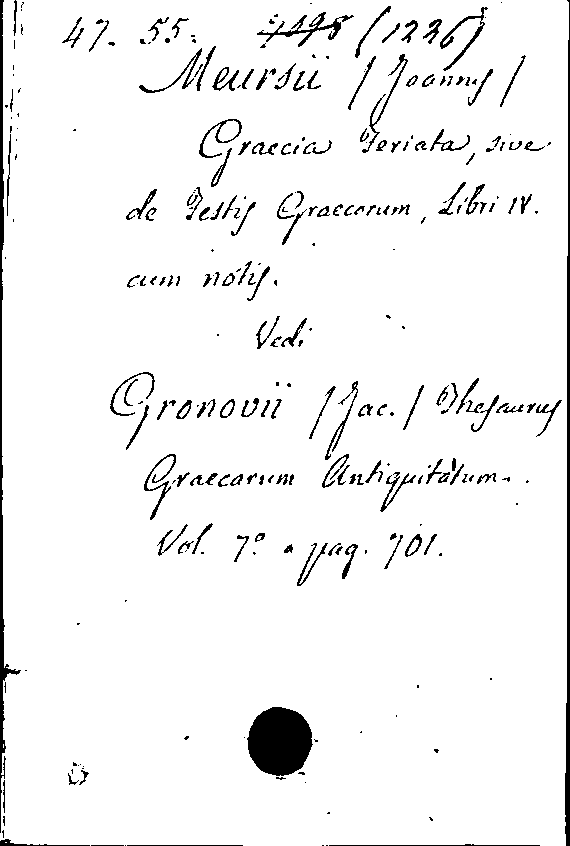 47. 55. (1226)
Meursii / Joannis /
Graecia Feriata, sive
de Festis Graecorum, Libri IV.
cum notis.
Vedi
Gronovii / Jac. / Thesaurus
Graecarum Antiquitatum.
Vol. 7º a pag. 701.